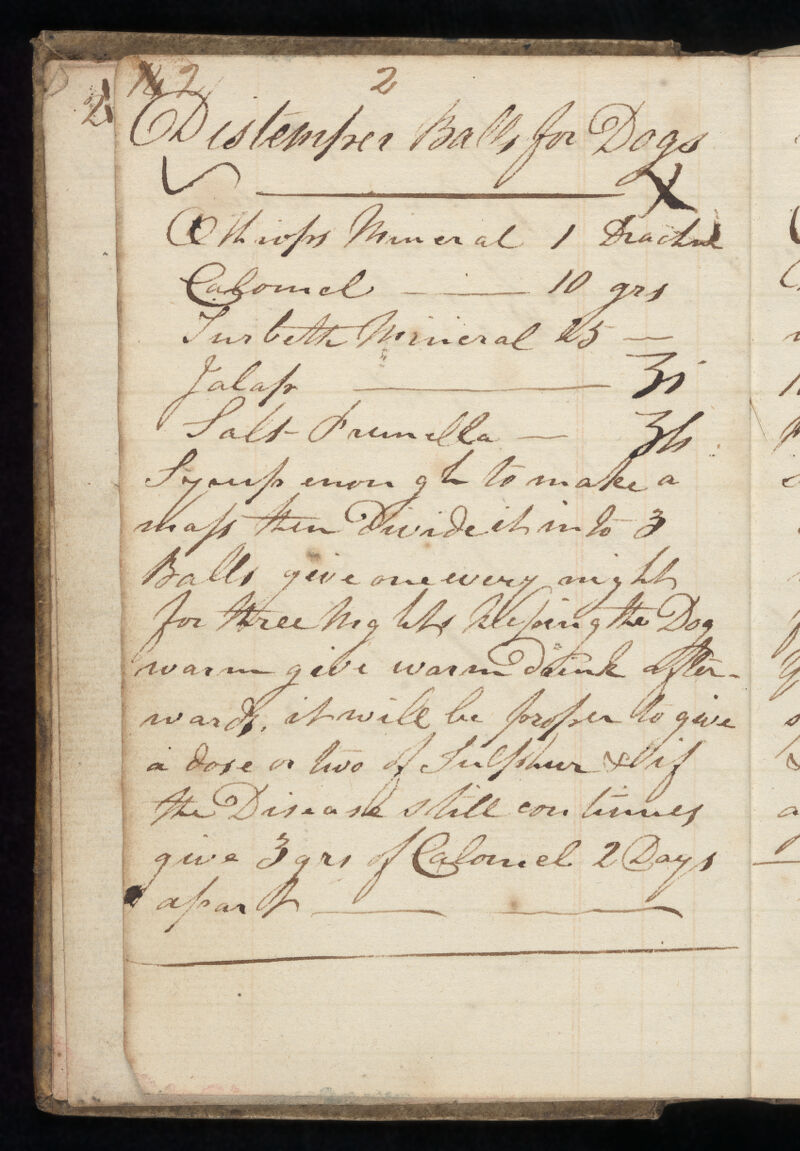 2
2
Distemper Balls for Dogs
Æthiops Mineral 1 Drachm
Calomel — 10 grs
Turbeth Mineral 25 —
Jalap — ʒi
Salt Prunella — ʒß
Syrup enough to make a
maſs then Divide it into 3
Balls give one every night
for three Nights keeping the Dog
warm give warm Drink after-
wards, it will be proper to give
a dose or two of Sulphur & if
the Disease still continues
give 3 grs of Calomel 2 Days
apart —